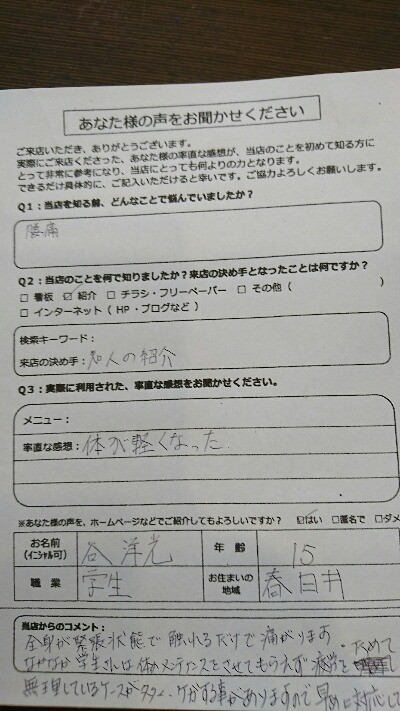 あなた様の声をお聞かせください
ご来店いただき、ありがとうございます。
実際にご来店くださった、あなた様の率直な感想が、当店のことを初めて知る方に
とって非常に参考になり、当店にとっても何よりの力となります。
できるだけ具体的に、ご記入いただけると幸いです。ご協力よろしくお願いします。
Q1:当店を知る前、どんなことで悩んでいましたか?
腰痛
Q2:当店のことを何で知りましたか?来店の決め手となったことは何ですか?
□ 看板 ☑ 紹介 □ チラシ・フリーペーパー □ その他( )
□ インターネット( HP・ブログなど )
検索キーワード:
来店の決め手:知人の紹介
Q3:実際に利用された、率直な感想をお聞かせください。
メニュー:
率直な感想:体が軽くなった
※あなた様の声を、ホームページなどでご紹介してもよろしいですか? ☑はい □匿名で □ダメ
お名前 谷 洋光 年 齢 15
(イニシャル可)
職 業 学生 お住まいの 春日井
地域
当店からのコメント:
全身が緊張状態で触れるだけで痛がります
なかなか学生さんは体のメンテナンスをさせてもらえず疲労を ためて
無理しているケースが多い ケガする事がありますので早めに対応して